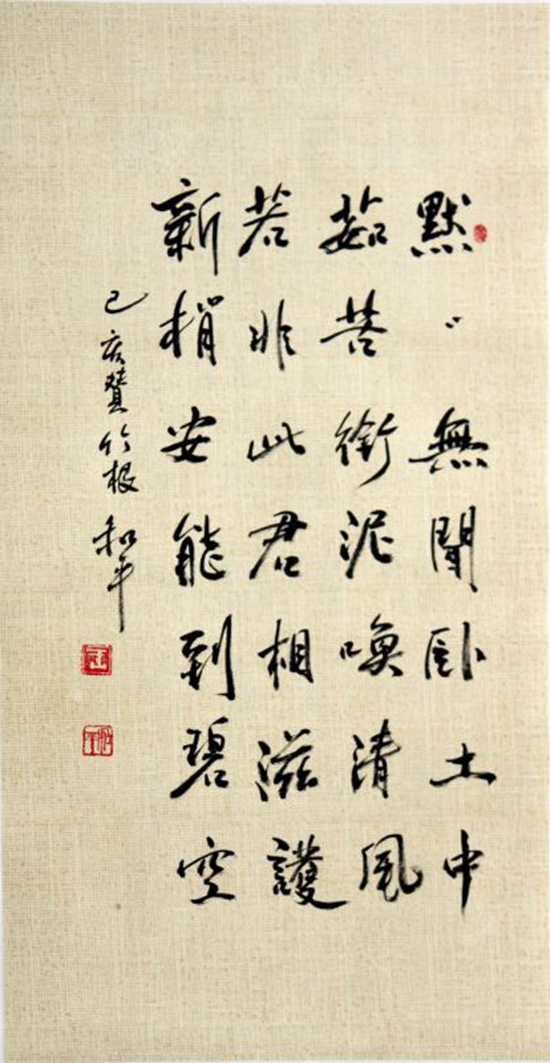 默〻無聞臥土中
茹苦銜泥喚清風
若非此君相滋護
新梢安能到碧空
己亥贊竹根 和平